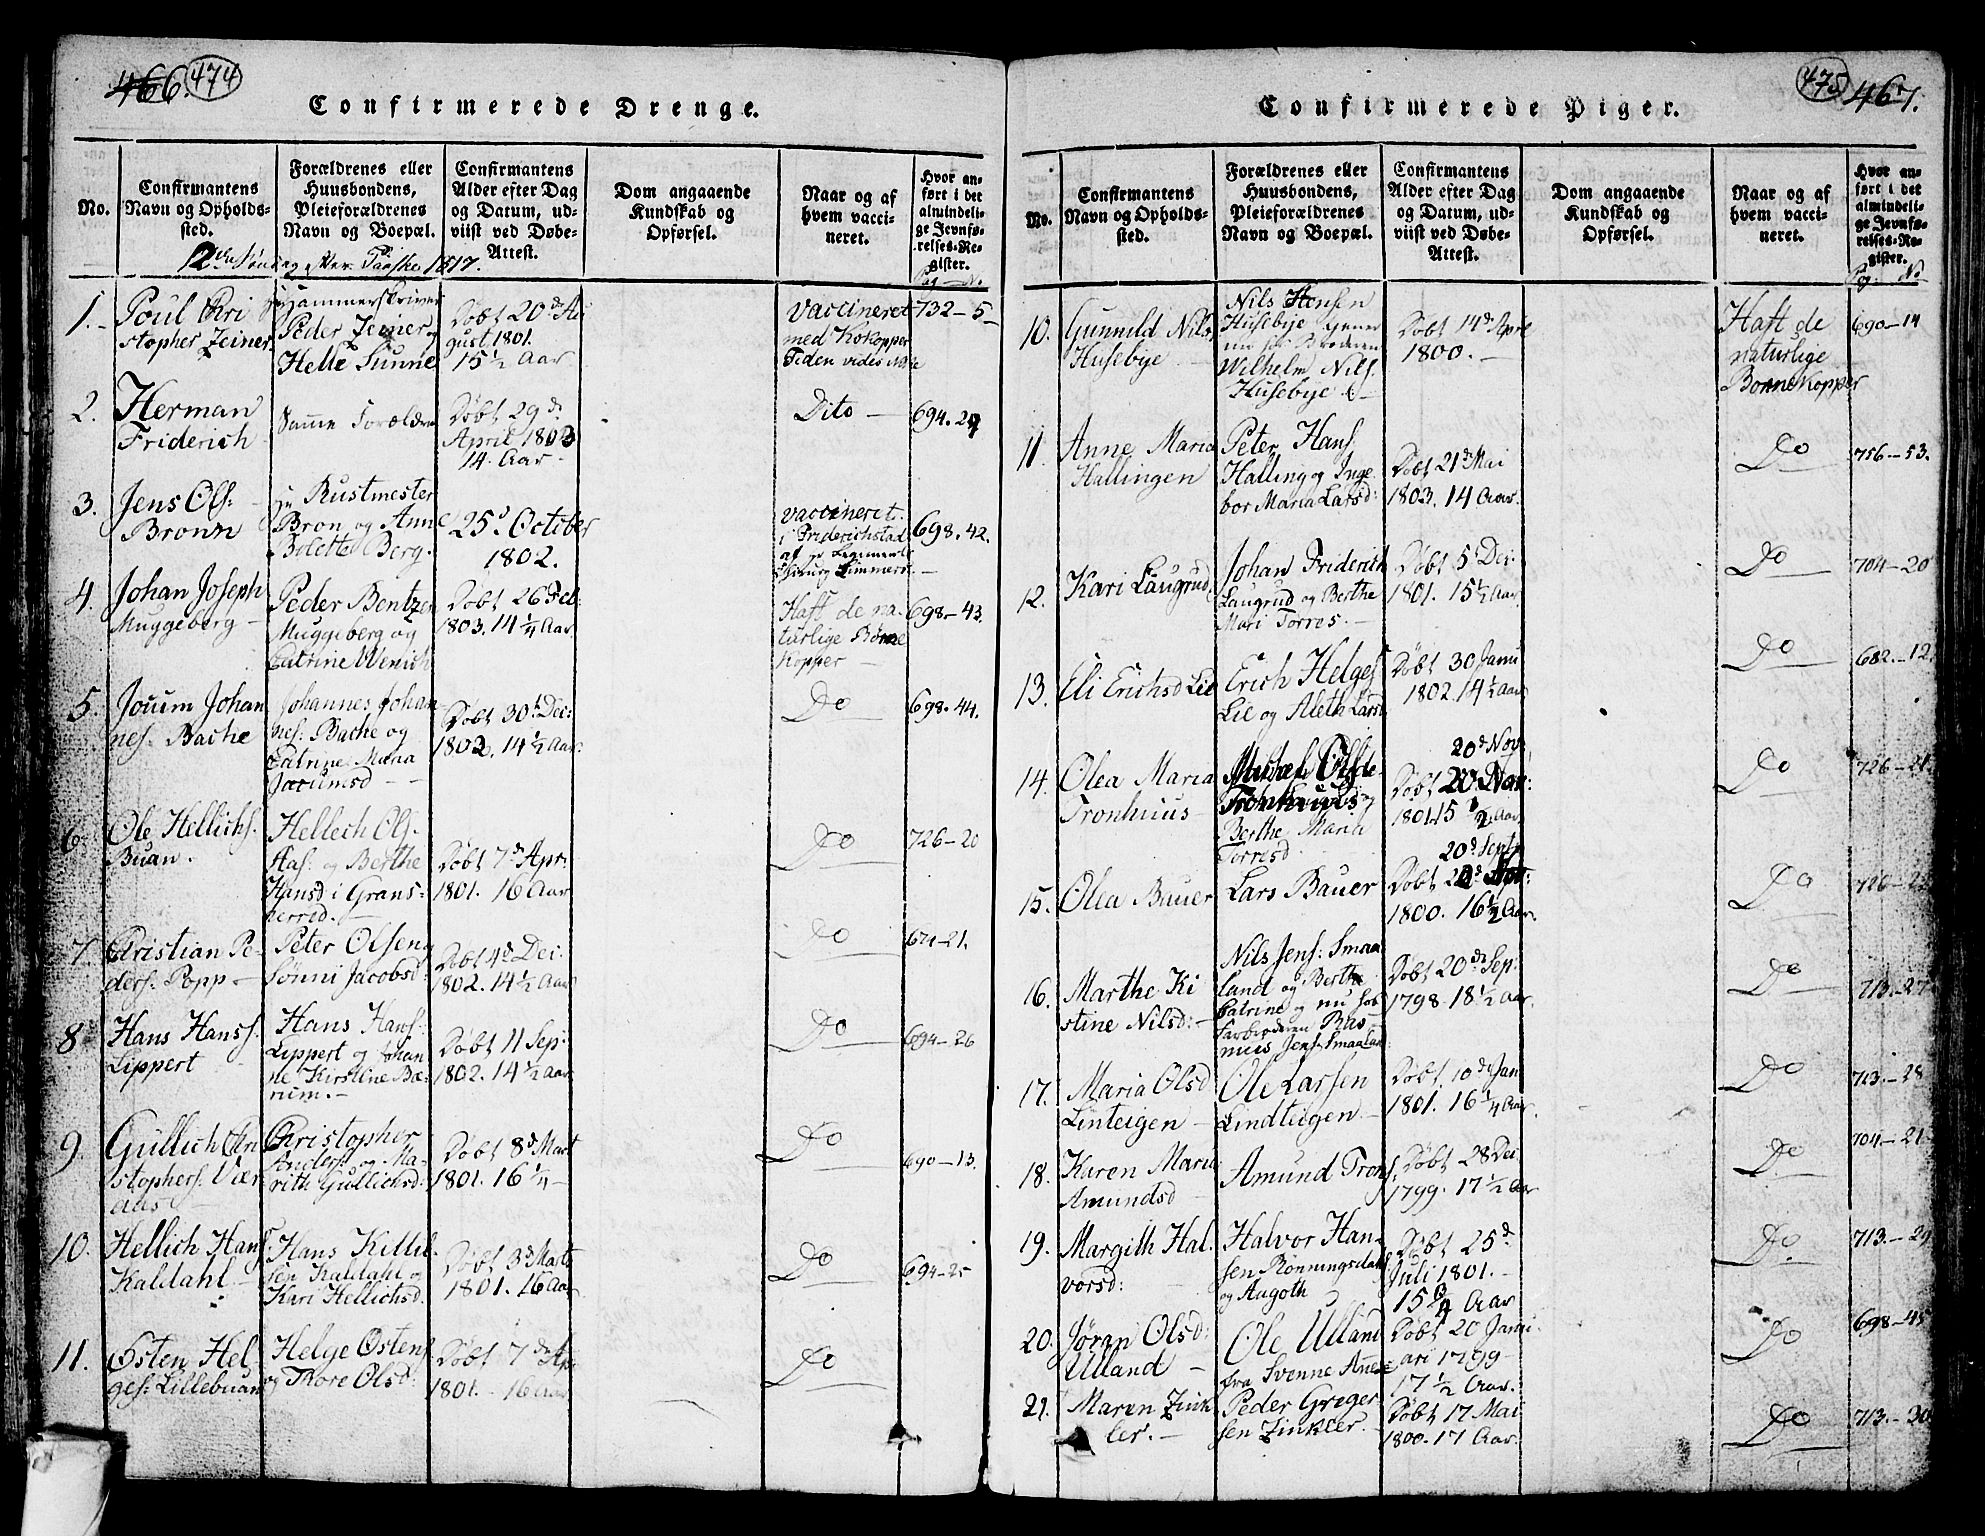 466. 474
Confirmerede Drenge.
No.
Confirmantens
Navn og Opholds-
sted.
Forældrenes eller
Huusbondens,
Pleieforældrenes
Navn og Boepæl.
Confirmantens
Alder efter Dag
og Datum, ud-
viist ved Døbe-
Attest.
Dom angaaende
Kundskab og
Opførsel.
Naar og af
hvem vacci-
neret.
Hvor an-
ført i det
almindeli-
ge Jevnfø-
relses-Re-
gister.
Pag No
2den Søndag efter Paaske 1817.
1.
Poul Chri
stopher Zeiner
Hr Hammerskriver
Peder Zeiner og
Helle Sunne
Døbt 20de Au
gust 1801.
15 1/2 Aar
Vaccineret
med Kokopper
Tiden vides ikke
732-5
2.
Herman
Friderich
Samme Forældre
Døbt 29de
April 1803
14. Aar
Dito
694.24
3.
Jens Ols:
Bronn
Hr Rustmester
Bron og Anne
Bolette Berg.
25d October
1802.
vaccineret
i Friderichstad
698.42.
4.
Johan Joseph
Muggeberg
Peder Bentzen
Muggeberg og
Catrine Wenich
Døbt 26d Feb:
1803. 14 1/4 Aar
Haft de na-
turlige Børne
Kopper
698-43.
5.
Jouum Johan
nes. Bache
Johannes Johan
nes: Bache og
Catrine Maria
Jocumsd
Døbt 30d Dec:
1802. 14 1/2 Aar.
Do
698.44.
6.
Ole Hellichs.
Buan.
Hellech Ols.
Aas: og Berthe
Hansd i Grans-
herred.
Døbt 7d Apr.
1801. 16 Aar
Do
726-20
7.
Christian Pe-
ders. Popp
Peter Olsen og
Sønni Jacobsd:
Døbt 4d Dec:
1802. 14 1/2 Aar
Do
674-21.
8.
Hans Hanss.
Lippert
Hans Hans:
Lippert og Johan
ne Kirstine Bæ-
rum.
Døbt 11 Sep:
1802. 14 1/2 Aar
Do
694-26
9.
Gullich Chri
stophers. Vær
aas
Christopher
Anders: og Ma-
rith Gullichsd:
Døbt 8d Mart
1801. 16 1/4
Do
690-13.
10.
Hellich Hans
Kaldahl
Hans Killil-
sen Kaldahl og
Kari Hellichsd.
Døbt 3d Marts
1801. 16 Aar
Do
694-25
11.
Østen Hel-
ges: Lillebuan
Helge Østens
og Thore Olsd:
Døbt 7de Apr
1801. 16 Aar
Do
475 467.
Confirmerede Piger.
No.
Confirmantens
Navn og Opholds-
sted.
Forældrenes eller
Huusbondens,
Pleieforældrenes
Navn og Boepæl.
Confirmantens
Alder efter Dag
og Datum, ud-
viist ved Døbe-
Attest.
Dom angaaende
Kundskab og
Opførsel.
Naar og af
hvem vacci-
neret.
Hvor an-
ført i det
almindeli-
ge Jevnfø-
relses-Re-
gister.
Pag: No
10.
Gunnild Nils.
Husebye
Nils Hansen
Husebye,
Wilhelm Nils.
Husebye
Døbt 14d Apr.
1800.
Haft de
naturlige
Børnekopper
690-14
11.
Anne Maria
Hallingen
Peter Hans:
Halling og Inge
bor Maria Larsd:
Døbt 21d Mai
1803. 14 Aar.
Do
756-53.
12.
Kari Laugrud
Johan Friderich
Laugrud og Berthe
Mari Torres.
Døbt 5d Dec:
1801. 15 1/2 Aar.
Do
704-20
13.
Eli Erichsd Lie
Erich Helges
Lie og Aleth Larsd
Døbt 30 Janu
1802. 14 1/2 Aar
Do
682.-12.
14.
Olea Maria
Tronhuus
Tronhuus
Berthe Maria
Torresd
20d Nov
Døbt 20 Nov:
1801. 15 1/2 Aar
Do
726-21
15.
Olea Bauer
Lars Bauer
20d Septr
Døbt
1800. 16 1/2 Aar.
Do
16.
Marthe Ki
stine Nilsd:
Nils Jens: Smaa
land og Berthe
Catrine og nu hos
Farbroderen Ras
mus Jens. Smaalan
Døbt 20de Sep:
1798 18 1/2 Aar
Do
713.-27
17.
Maria Olsd
Linteigen
Ole Larsen
Lindteigen.
Døbt 10de Jan
1801. 16 1/4 Aar.
Do
713.-28
18.
Karen Maria
Amundsd
Amund Trons.
Døbt 28 Dec.
1799. 17 1/2 Aar
Do
704-21
19.
Margith Hal.
vorsd:
Halvor Han-
sen Ronningsdahl
og Aagoth
Døbt 25d
Juli 1801.
15 3/4 Aar
Do.
713.-29
20.
Jøran Olsd:
Ulland
Ole Ulland
fra Svenne Annex
Døbt 20 Janu-
ari 1799
17 1/2 Aar.
Do
698-45
21.
Maren Zink
ler.
Peder Greger
sen Zinkler.
Døbt 17 Mai
1800. 17 Aar.
Do
713.-30